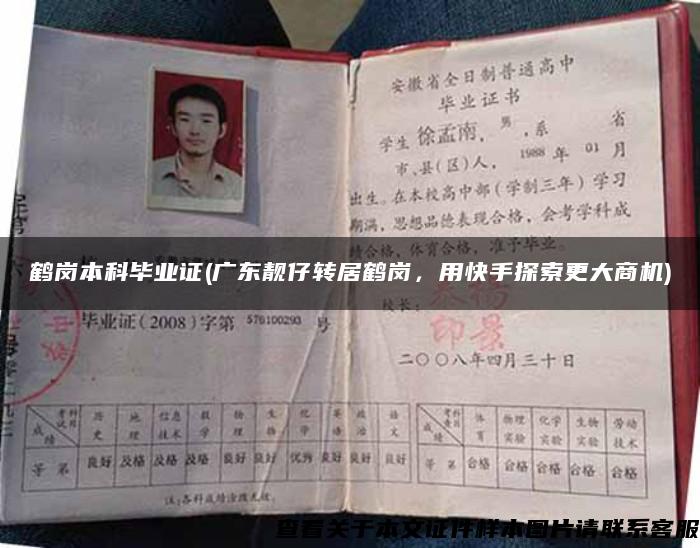 安徽省全日制普通高中
毕业证书
学生徐孟南，男，系 省
市、县(区)人，1988年01月
出生。在本校高中部(学制三年)学习
期满，思想品德表现合格，会考学科成
绩合格，体育合格，准予毕业。
鹤岗本科毕业证(广东靓仔转居鹤岗，用快手探索更大商机)
校长：
印景
毕业证(2008)字第 576100293 号
二〇〇八年四月三十日
成绩 考试科目 历史 地理 信息技术 数学 物理 生物 化学 英语 政治 语文
等第 良好 及格 及格 及格 良好 良好 优秀 良好 良好 良好
成绩 考查科目 体育 物理实验 化学实验 生物实验 劳动技术
等第 合格 合格 合格 合格 合格
注:各科成绩涂改无效。
查看关于本文证件样本图片请联系客服